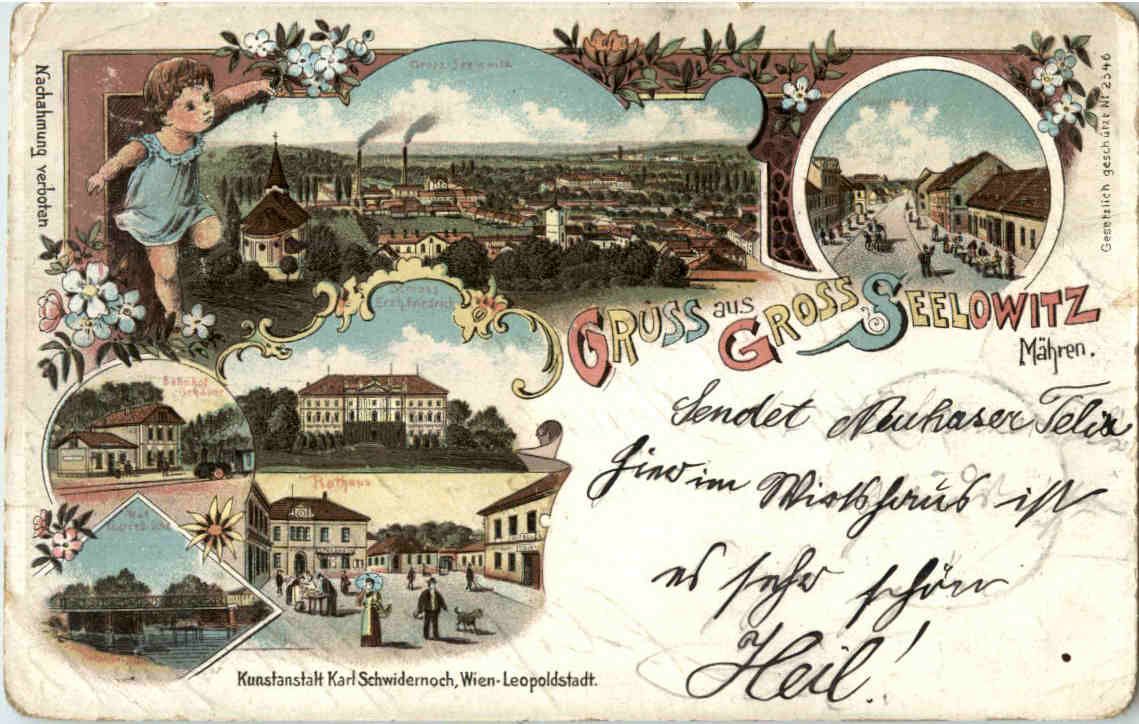 Nachahmung verboten
Gross-Seelowitz
Gesetzlich geschützt Nr 2346
Schloss
Erzh. Friedrich
GRUSS aus GROSS SEELOWITZ
Mähren.
Bahnhof
Rathaus
Sendet Neuhaser Felix
hier im Wirtshaus ist
es sehr schön
Heil!
Kunstanstalt Karl Schwidernoch, Wien-Leopoldstadt.